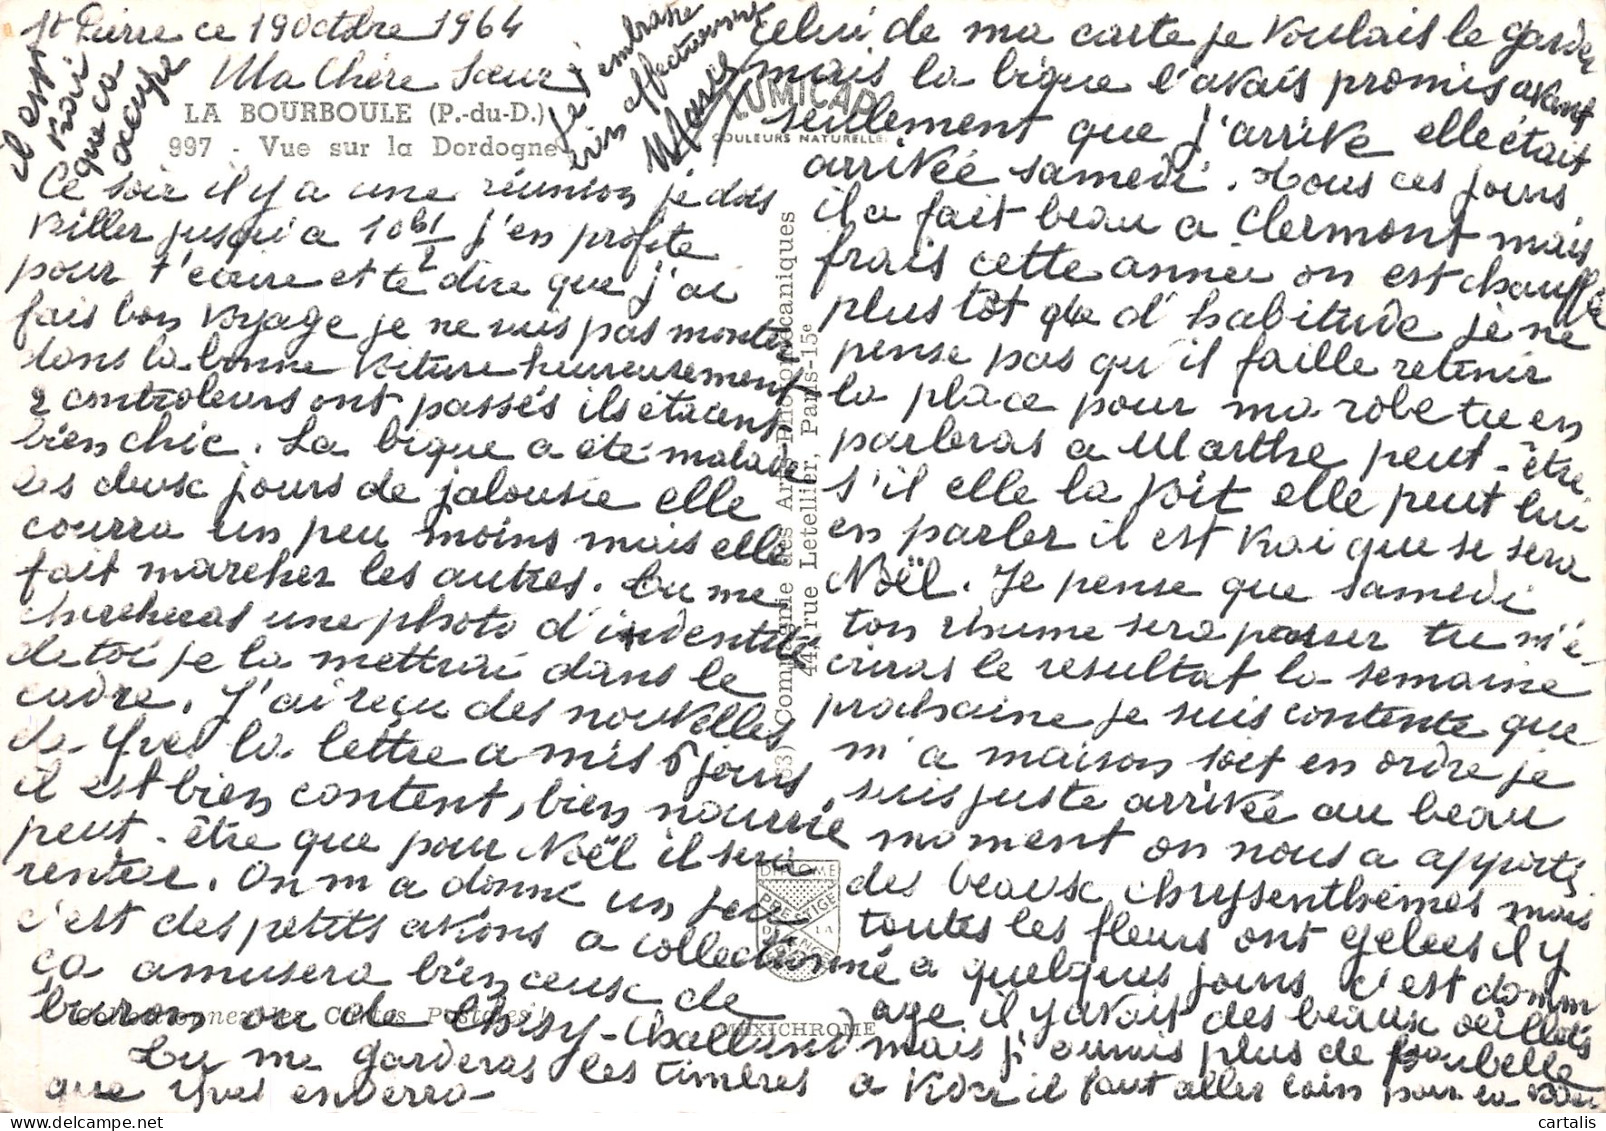 St Pierre ce 19 Octobre 1964
Ma Chère Sœur
LA BOURBOULE (P.-du-D.)
997 - Vue sur la Dordogne
Ce soir il y a une réunion je dois
viller jusqu'a 10 h 1/2 j'en profite
pour t'écrire et te dire que j'ai
fais bon voyage je ne suis pas montée
dans la bonne voiture heureusement
2 controleurs ont passés ils étaient
bien chic. La bique a été malade
les deux jours de jalousie elle
courra un peu moins mais elle
fait marcher les autres. Tu me
chercheras une photo d'indentité
de toi je la mettrai dans le
cadre. J'ai reçu des nouvelles
de Yves la lettre a mis 6 jours
il est bien content, bien nourrie
peut-être que pour Noël il sera
rentré. On m'a donné un jeu
c'est des petits avions a collectionné
ça amusera bien ceux de
buron ou de Choisy-Challand
Tu me garderas les timbres
que Yves enverra
celui de ma carte je voulais le garder
mais la bique l'avais promis avant
seulement que j'arrive elle était
arrivée samedi. Tous ces jours
il a fait beau a Clermont mais
frais cette année on est chauffé
plus tôt que d'habitude je ne
pense pas qu'il faille retenir
la place pour ma robe tu en
parleras a Marthe peut-être
s'il elle la voit elle peut lui
en parler il est vrai que se sera
Noël. Je pense que samedi
ton rhume sera passer tu m'é-
criras le resultat la semaine
prochaine je suis contente que
m'a maison soit en ordre je
suis juste arrivée au beau
moment on nous a apporté
des beaux chrysenthèmes mais
toutes les fleurs ont gelées il y
a quelques jours c'est domm
age il y avait des beaux œillets
mais j'aurais plus de poubelle
a vider il faut aller loin pour la
il est
vrai
que ça
occupe
Je t'embrasse
bien affectueusement
LUMICAP
COULEURS NATURELLES
(63) Compagnie des Arts Photomécaniques
44, rue Letellier, Paris-15e
DIPLOME
PRESTIGE
DE LA
FRANCE
Collectionnez les Cartes Postales !
MEXICHROME
cartalis
www.delcampe.net